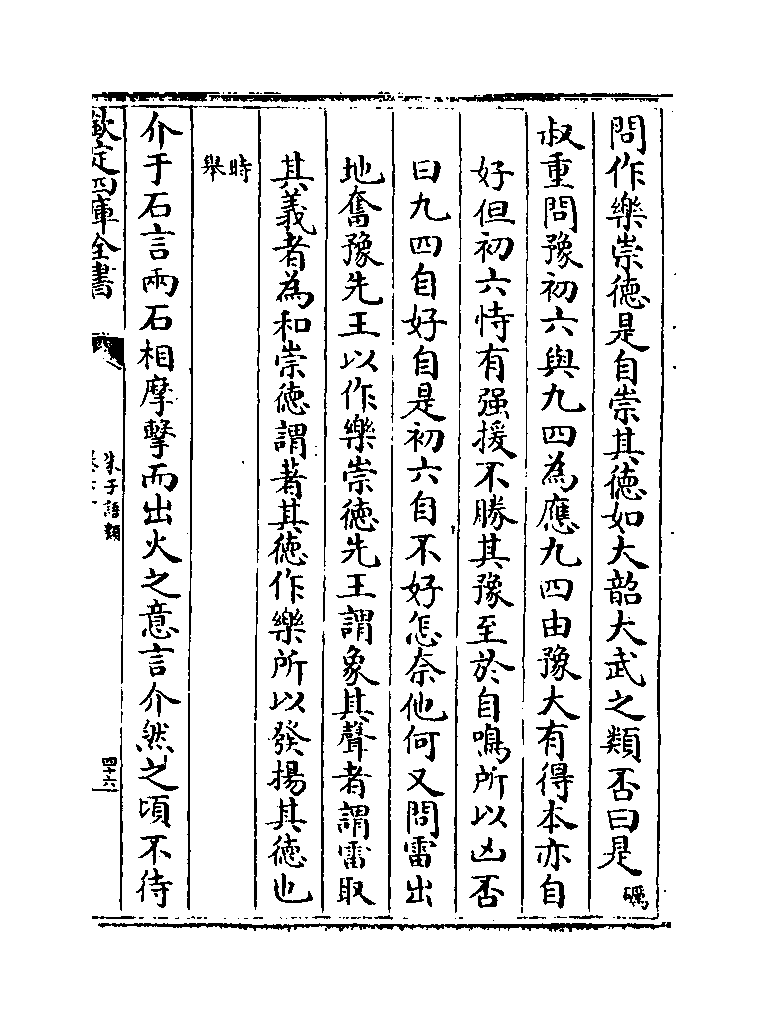 問作樂崇徳是自崇其徳如大韶大武之類否曰是礪
叔重問豫初六與九四為應九四由豫大有得本亦自
好但初六恃有强援不勝其豫至於自鳴所以凶否
曰九四自好自是初六自不好怎奈他何又問雷出
地奮豫先王以作樂崇徳先王謂象其聲者謂雷取
其義者為和崇徳謂著其徳作樂所以發揚其徳也
時
舉
介于石言兩石相摩擊而出火之意言介然之頃不待
欽定四庫全書
朱子語類
四十六